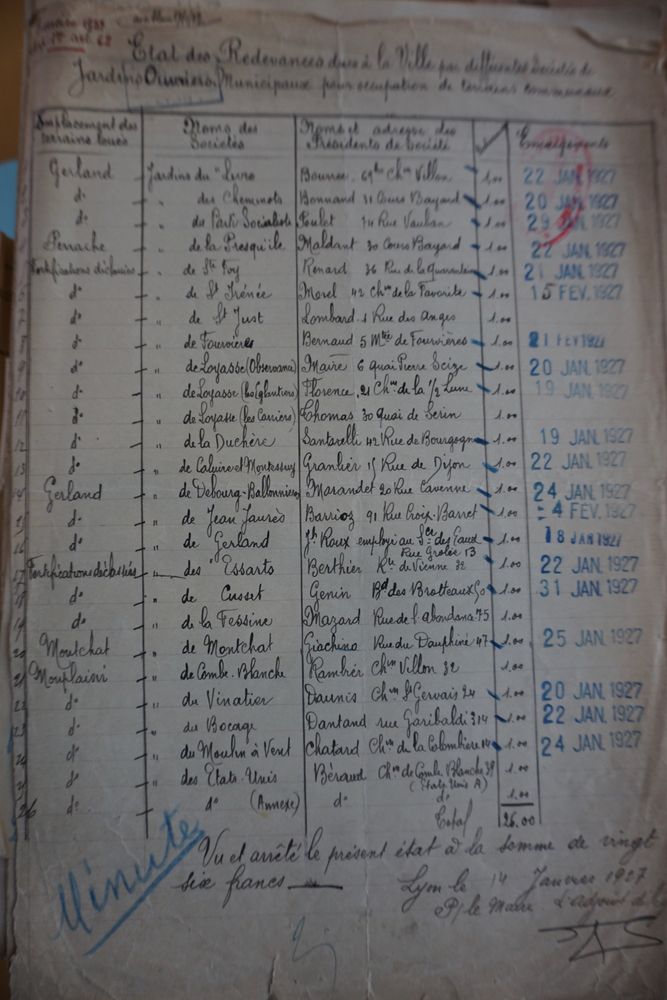 Etat des Redevances dues à la Ville par différentes Sociétés de
Jardins Ouvriers Municipaux pour occupation de terrains communaux
Emplacement des terrains loués Noms des Sociétés Noms et adresse des Présidents de Société Emargements
Gerland Jardins du "Livre Bourree 69bis Chin Villon 1.00 22 JAN. 1927
d° " des Cheminots Bonnand 31 Cours Bayard 1.00 20 JAN. 1927
d° " du Parti Socialiste Poulet 74 Rue Vauban 1.00 29 JAN. 1927
Perrache " de la Presqu'île Maldant 30 Cours Bayard 1.00 22 JAN. 1927
Fortifications déclassées " de Ste Foy Renard 36 Rue de la Quarantaine 1.00 21 JAN. 1927
6 d° " de St Irénée Morel 42 Chin de la Favorite 1.00 15 FEV. 1927
7 d° " de St Just Lombard 1 Rue des Anges 1.00
8 d° " de Fourvières Bernaud 5 Mtée de Fourvières 1.00 21 FEV 1927
9 d° " de Loyasse (Observance) Maire 6 quai Pierre Scize 1.00 20 JAN. 1927
10 d° " de Loyasse (les Eglantiers) Florence 21 Chin de la 1/2 Lune 1.00 19 JAN. 1927
11 d° " de Loyasse (les Carriers) Thomas 30 Quai de Serin 1.00
12 d° " de la Duchère Santarelli 42 Rue de Bourgogne 1.00 19 JAN. 1927
13 d° " de Caluire et Montessuy Granlier 15 Rue de Dijon 1.00 22 JAN. 1927
14 Gerland " de Debourg-Ballonnière Marandet 20 Rue Cavenne 1.00 24 JAN. 1927
15 d° " de Jean Jaurès Barrioz 91 Rue Croix-Barret 1.00 -4 FEV. 1927
16 d° " de Gerland Jh Roux employé au Sce des Eaux 1.00 18 JAN 1927
Rue Grolée 13
17 Fortifications déclassées " des Essarts Berthier Rte de Vienne 32 1.00 22 JAN. 1927
18 d° " de Cusset Genin Bd des Brotteaux 50 1.00 31 JAN. 1927
19 d° " de la Fessine Mazard Rue de l'abondance 75 1.00
20 Montchat " de Montchat Giachino Rue du Dauphiné 47 1.00 25 JAN. 1927
21 Monplaisir " de Combe-Blanche Rambier Chin Villon 32 1.00
22 d° " du Vinatier Daunis Chin St Gervais 24 1.00 20 JAN. 1927
23 d° " du Bocage Dantand rue Garibaldi 314 1.00 22 JAN. 1927
24 d° " du Moulin à Vent Chatard Chin de la Colombière 14 1.00 24 JAN. 1927
d° " des Etats-Unis Béraud Chin de Combe Blanche 39 1.00
(Etats Unis A)
26 d° d° (Annexe) d° d° 1.00
Total 26.00
Minute
Vu et arrêté le présent état à la somme de vingt
six francs
Lyon le 14 Janvier 1927
P/ le Maire L'adjoint